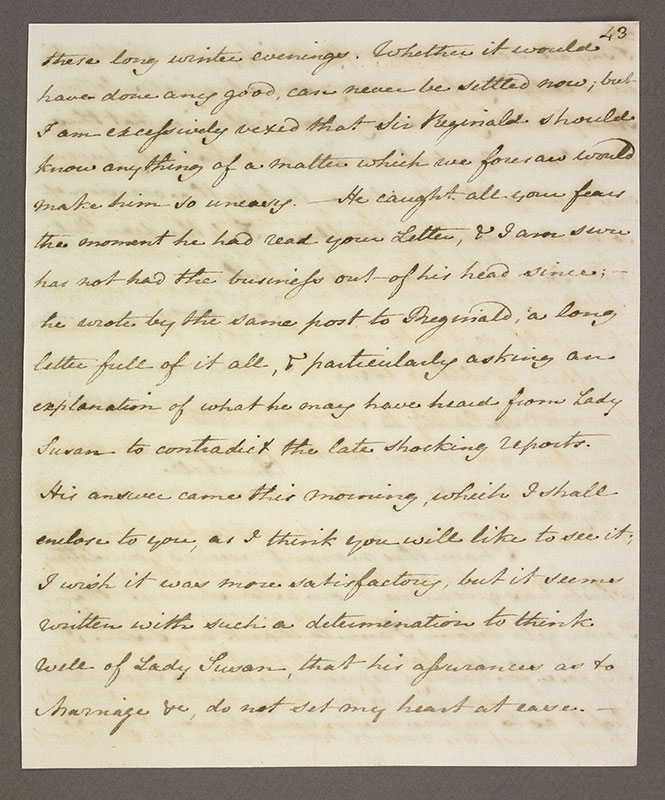 43
these long winter evenings. Whether it would
have done any good, can never be settled now; but
I am excessively vexed that Sir Reginald should
know anything of a matter which we foresaw would
make him so uneasy. — He caught all your fears
the moment he had read your Letter, & I am sure
has not had the business out of his head since; —
he wrote by the same post to Reginald, a long
letter full of it all, & particularly asking an
explanation of what he may have heard from Lady
Susan to contradict the late shocking reports.
His answer came this morning, which I shall
enclose to you, as I think you will like to see it;
I wish it was more satisfactory, but it seems
written with such a determination to think
well of Lady Susan, that his assurances as to
Marriage &c, do not set my heart at ease. —